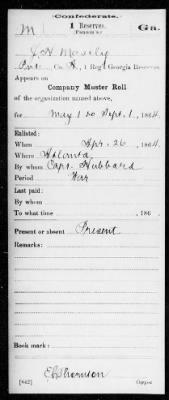 Confederate.
M 1 Reserves. Ga.
Pvt., Co. K, 1 Reg't Georgia Reserves.
Appears on
Company Muster Roll
of the organization named above,
for May 1 to Sept. 1, 1864.
Enlisted:
When Apr. 26, 1864.
Where Atlanta
By whom Capt. Hubbard
Period War
Last paid:
By whom
To what time , 186 .
Present or absent Present
Remarks:
Book mark:
(642) Copyist.